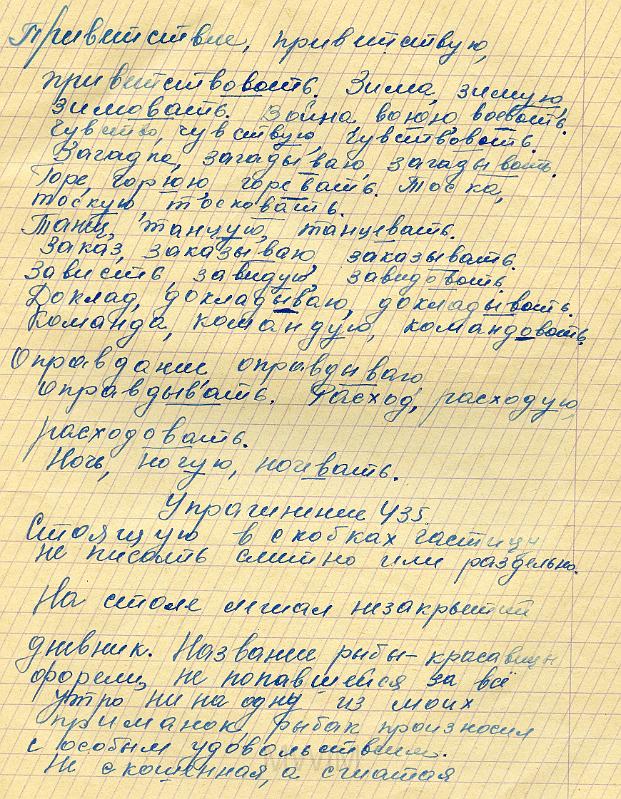 Приветствие, приветствую,
приветствовать. Зима, зимую,
зимовать. Война воюю воевать.
Чувство, чувствую, чувствовать.
Загадка, загадываю, загадывать.
Горе, горюю, горевать. Тоска,
тоскую тосковать.
Танц, танцую, танцевать.
Заказ, заказываю заказывать.
Зависть, завидую, завидовать.
Доклад, докладываю, докладывать.
Команда, командую, командовать.
Оправдание оправдываю
Оправдывать. Расход, расходую,
расходовать.
Ночь, ночую, ночевать.
Упражнение 435.
Стоящую в скобках частицу
не писать слитно или раздельно.
На столе лежал незакрытый
дневник. Название рыбы-красавицы
форели, не попавшейся за всё
утро ни на одну из моих
приманок, рыбак произносил
с особым удовольствием.
Не скошенная, а сжатая